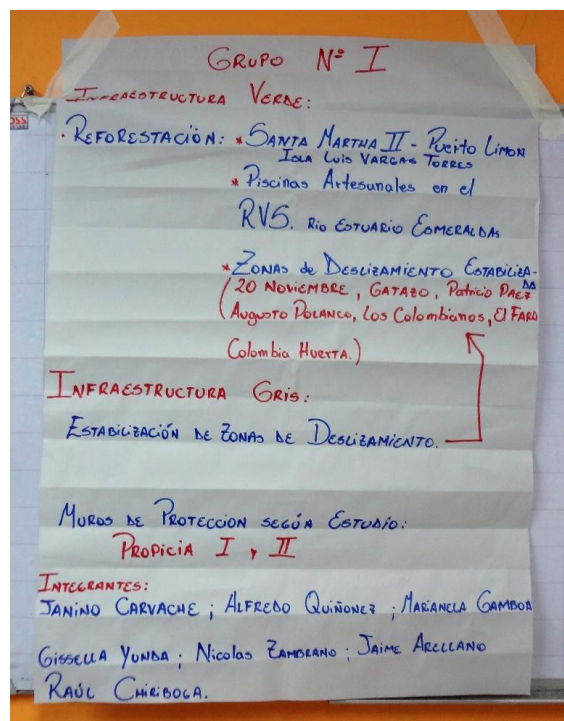 GRUPO Nº I
INFRAESTRUCTURA VERDE:
· REFORESTACIÓN: * SANTA MARTHA II - Puerto LIMON
ISLA LUIS VARGAS TORRES
* Piscinas Artesanales en el
RVS. RIO ESTUARIO ESMERALDAS
* ZONAS de DESLIZAMIENTO ESTABILIZA-
DA
(20 NOVIEMBRE, GATAZO, Patricio PAEZ
Augusto POLANCO, Los Colombianos, El FARO
Colombia HUERTA.)
INFRAESTRUCTURA GRIS:
ESTABILIZACIÓN DE ZONAS DE DESLIZAMIENTO.
MUROS DE PROTECCION SEGÚN ESTUDIO:
PROPICIA I y II
INTEGRANTES:
JANINO CARVACHE; ALFREDO QUIÑONEZ; MARIANELA GAMBOA
GISSELLA YUNDA; Nicolas ZAMBRANO; JAIME ARELLANO
RAÚL CHIRIBOGA.